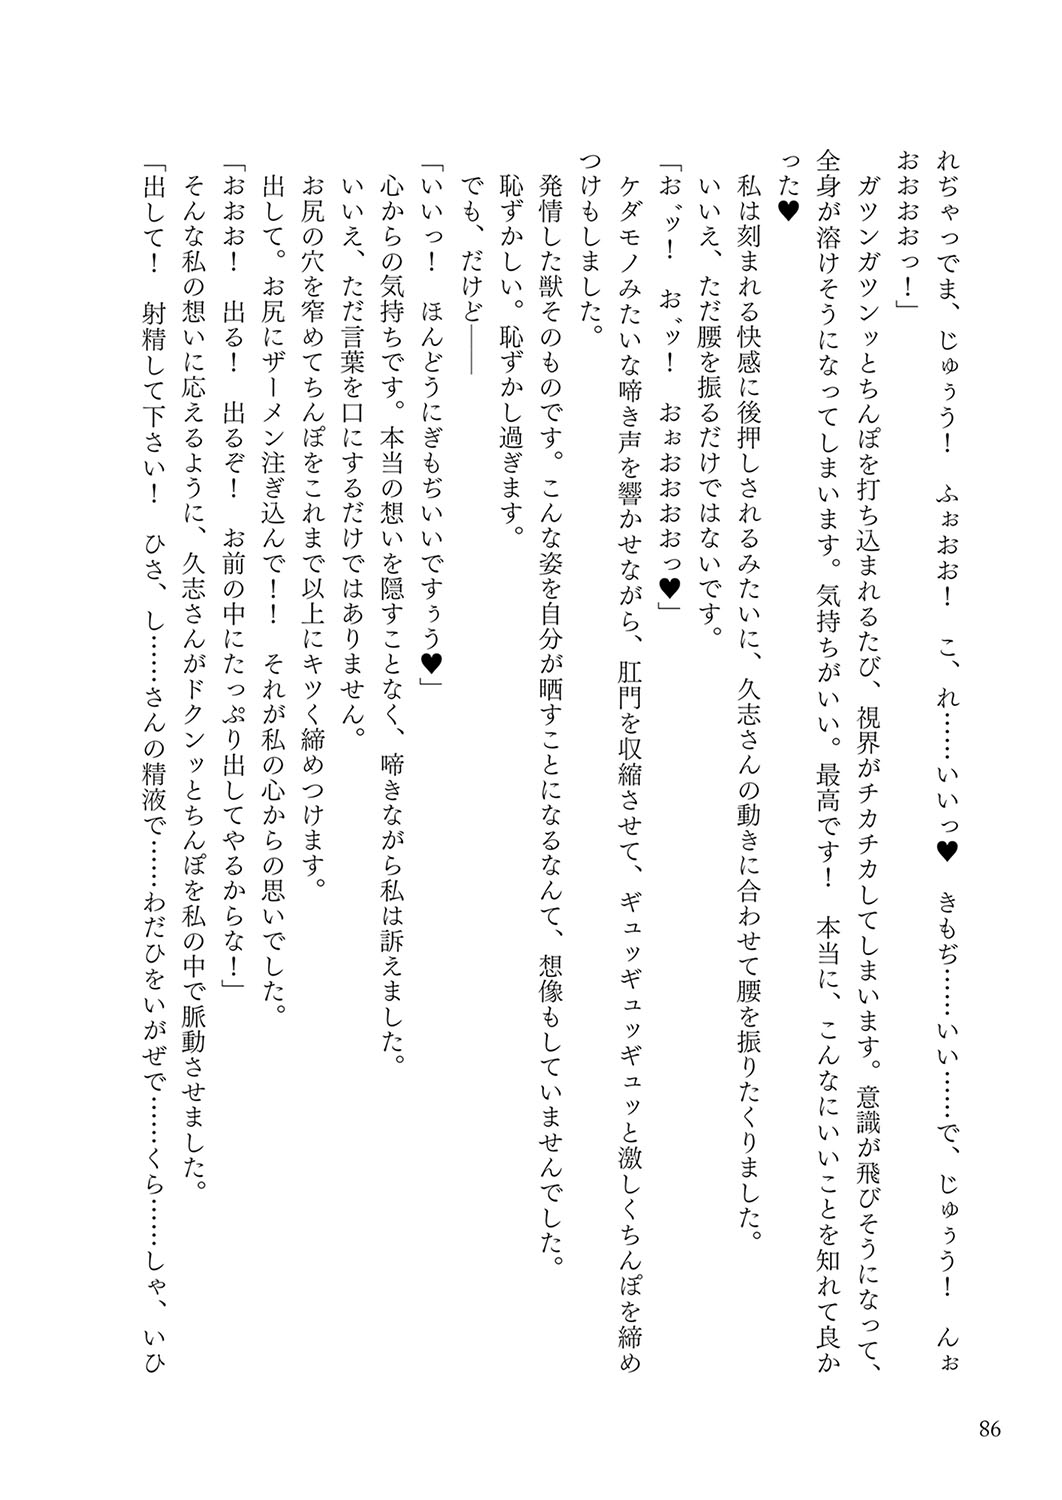 れぢゃっでま、じゅぅう！　ふぉおお！　こ、れ……いいっ♥　きもぢ……いい……で、じゅぅう！　んぉ
おおおおっ！」
　ガツンガツンッとちんぽを打ち込まれるたび、視界がチカチカしてしまいます。意識が飛びそうになって、
全身が溶けそうになってしまいます。気持ちがいい。最高です！　本当に、こんなにいいことを知れて良か
った♥
　私は刻まれる快感に後押しされるみたいに、久志さんの動きに合わせて腰を振りたくりました。
　いいえ、ただ腰を振るだけではないです。
「お゛ッ！　お゛ッ！　おぉおおおおっ♥」
　ケダモノみたいな啼き声を響かせながら、肛門を収縮させて、ギュッギュッギュッと激しくちんぽを締め
つけもしました。
　発情した獣そのものです。こんな姿を自分が晒すことになるなんて、想像もしていませんでした。
恥ずかしい。恥ずかし過ぎます。
　でも、だけど――
「いいっ！　ほんどうにぎもぢいいですぅう♥」
　心からの気持ちです。本当の想いを隠すことなく、啼きながら私は訴えました。
　いいえ、ただ言葉を口にするだけではありません。
　お尻の穴を窄めてちんぽをこれまで以上にキツく締めつけます。
　出して。お尻にザーメン注ぎ込んで！！　それが私の心からの思いでした。
「おおお！　出る！　出るぞ！　お前の中にたっぷり出してやるからな！」
　そんな私の想いに応えるように、久志さんがドクンッとちんぽを私の中で脈動させました。
「出して！　射精して下さい！　ひさ、し……さんの精液で……わだひをいがぜで……くら……しゃ、いひ
86